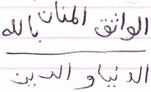 الواثق المنان بالله
الدنيا و الدين